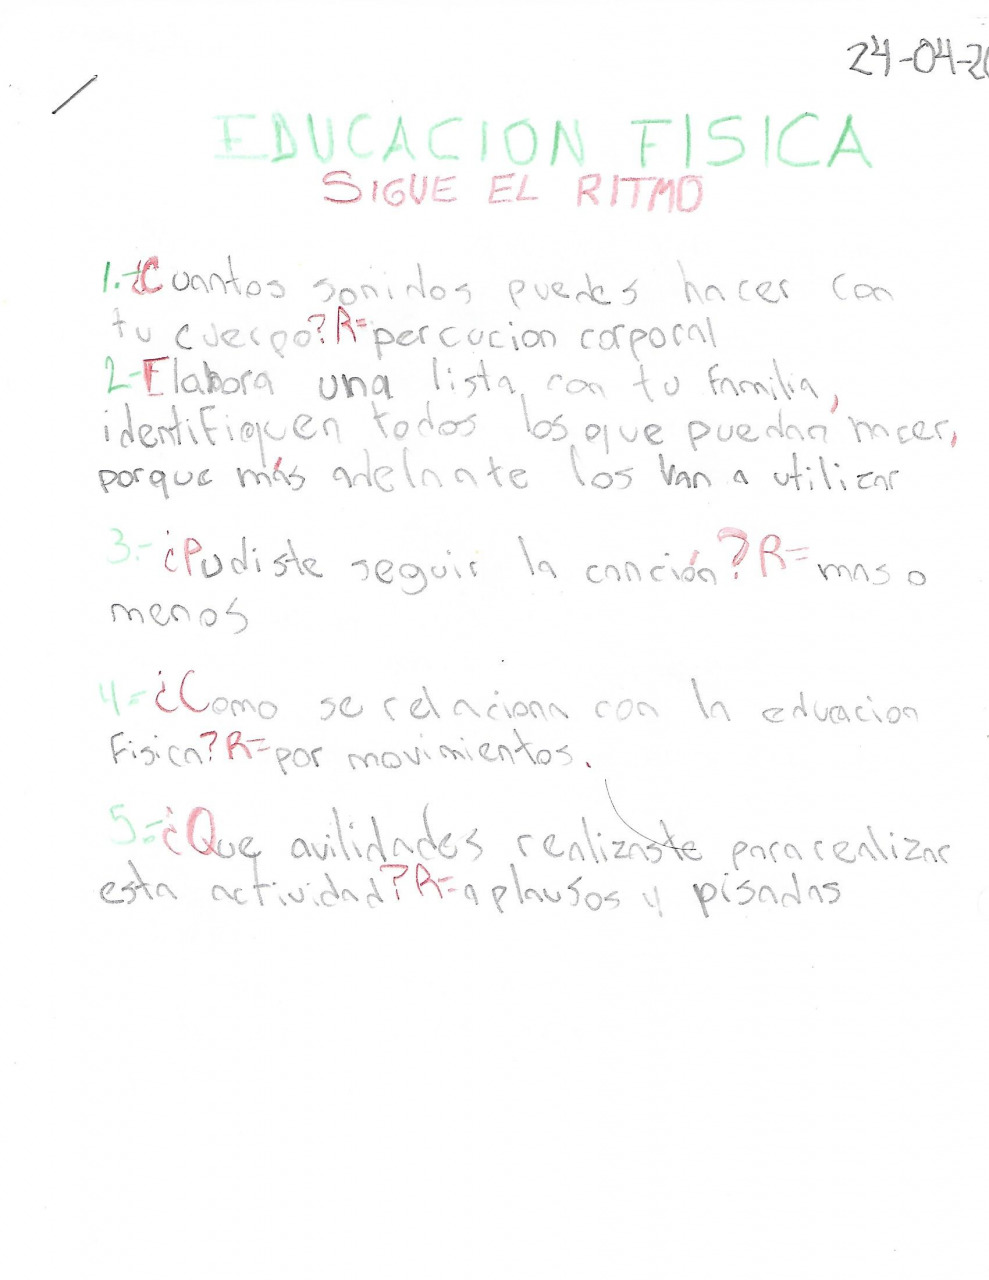 24-04-20
EDUCACION FISICA
SIGUE EL RITMO
1.-¿Cuantos sonidos puedes hacer con
tu cuerpo? R= percucion corporal
2-Elabora una lista con tu familia,
identifiquen todos los que puedan hacer,
porque más adelnate los van a utilizar
3.- ¿Pudiste seguir la canción? R= mas o
menos
4-¿Como se relaciona con la educacion
Fisica? R= por movimientos.
5.-¿Que avilidades realizaste para realizar
esta actividad? R= aplausos y pisadas